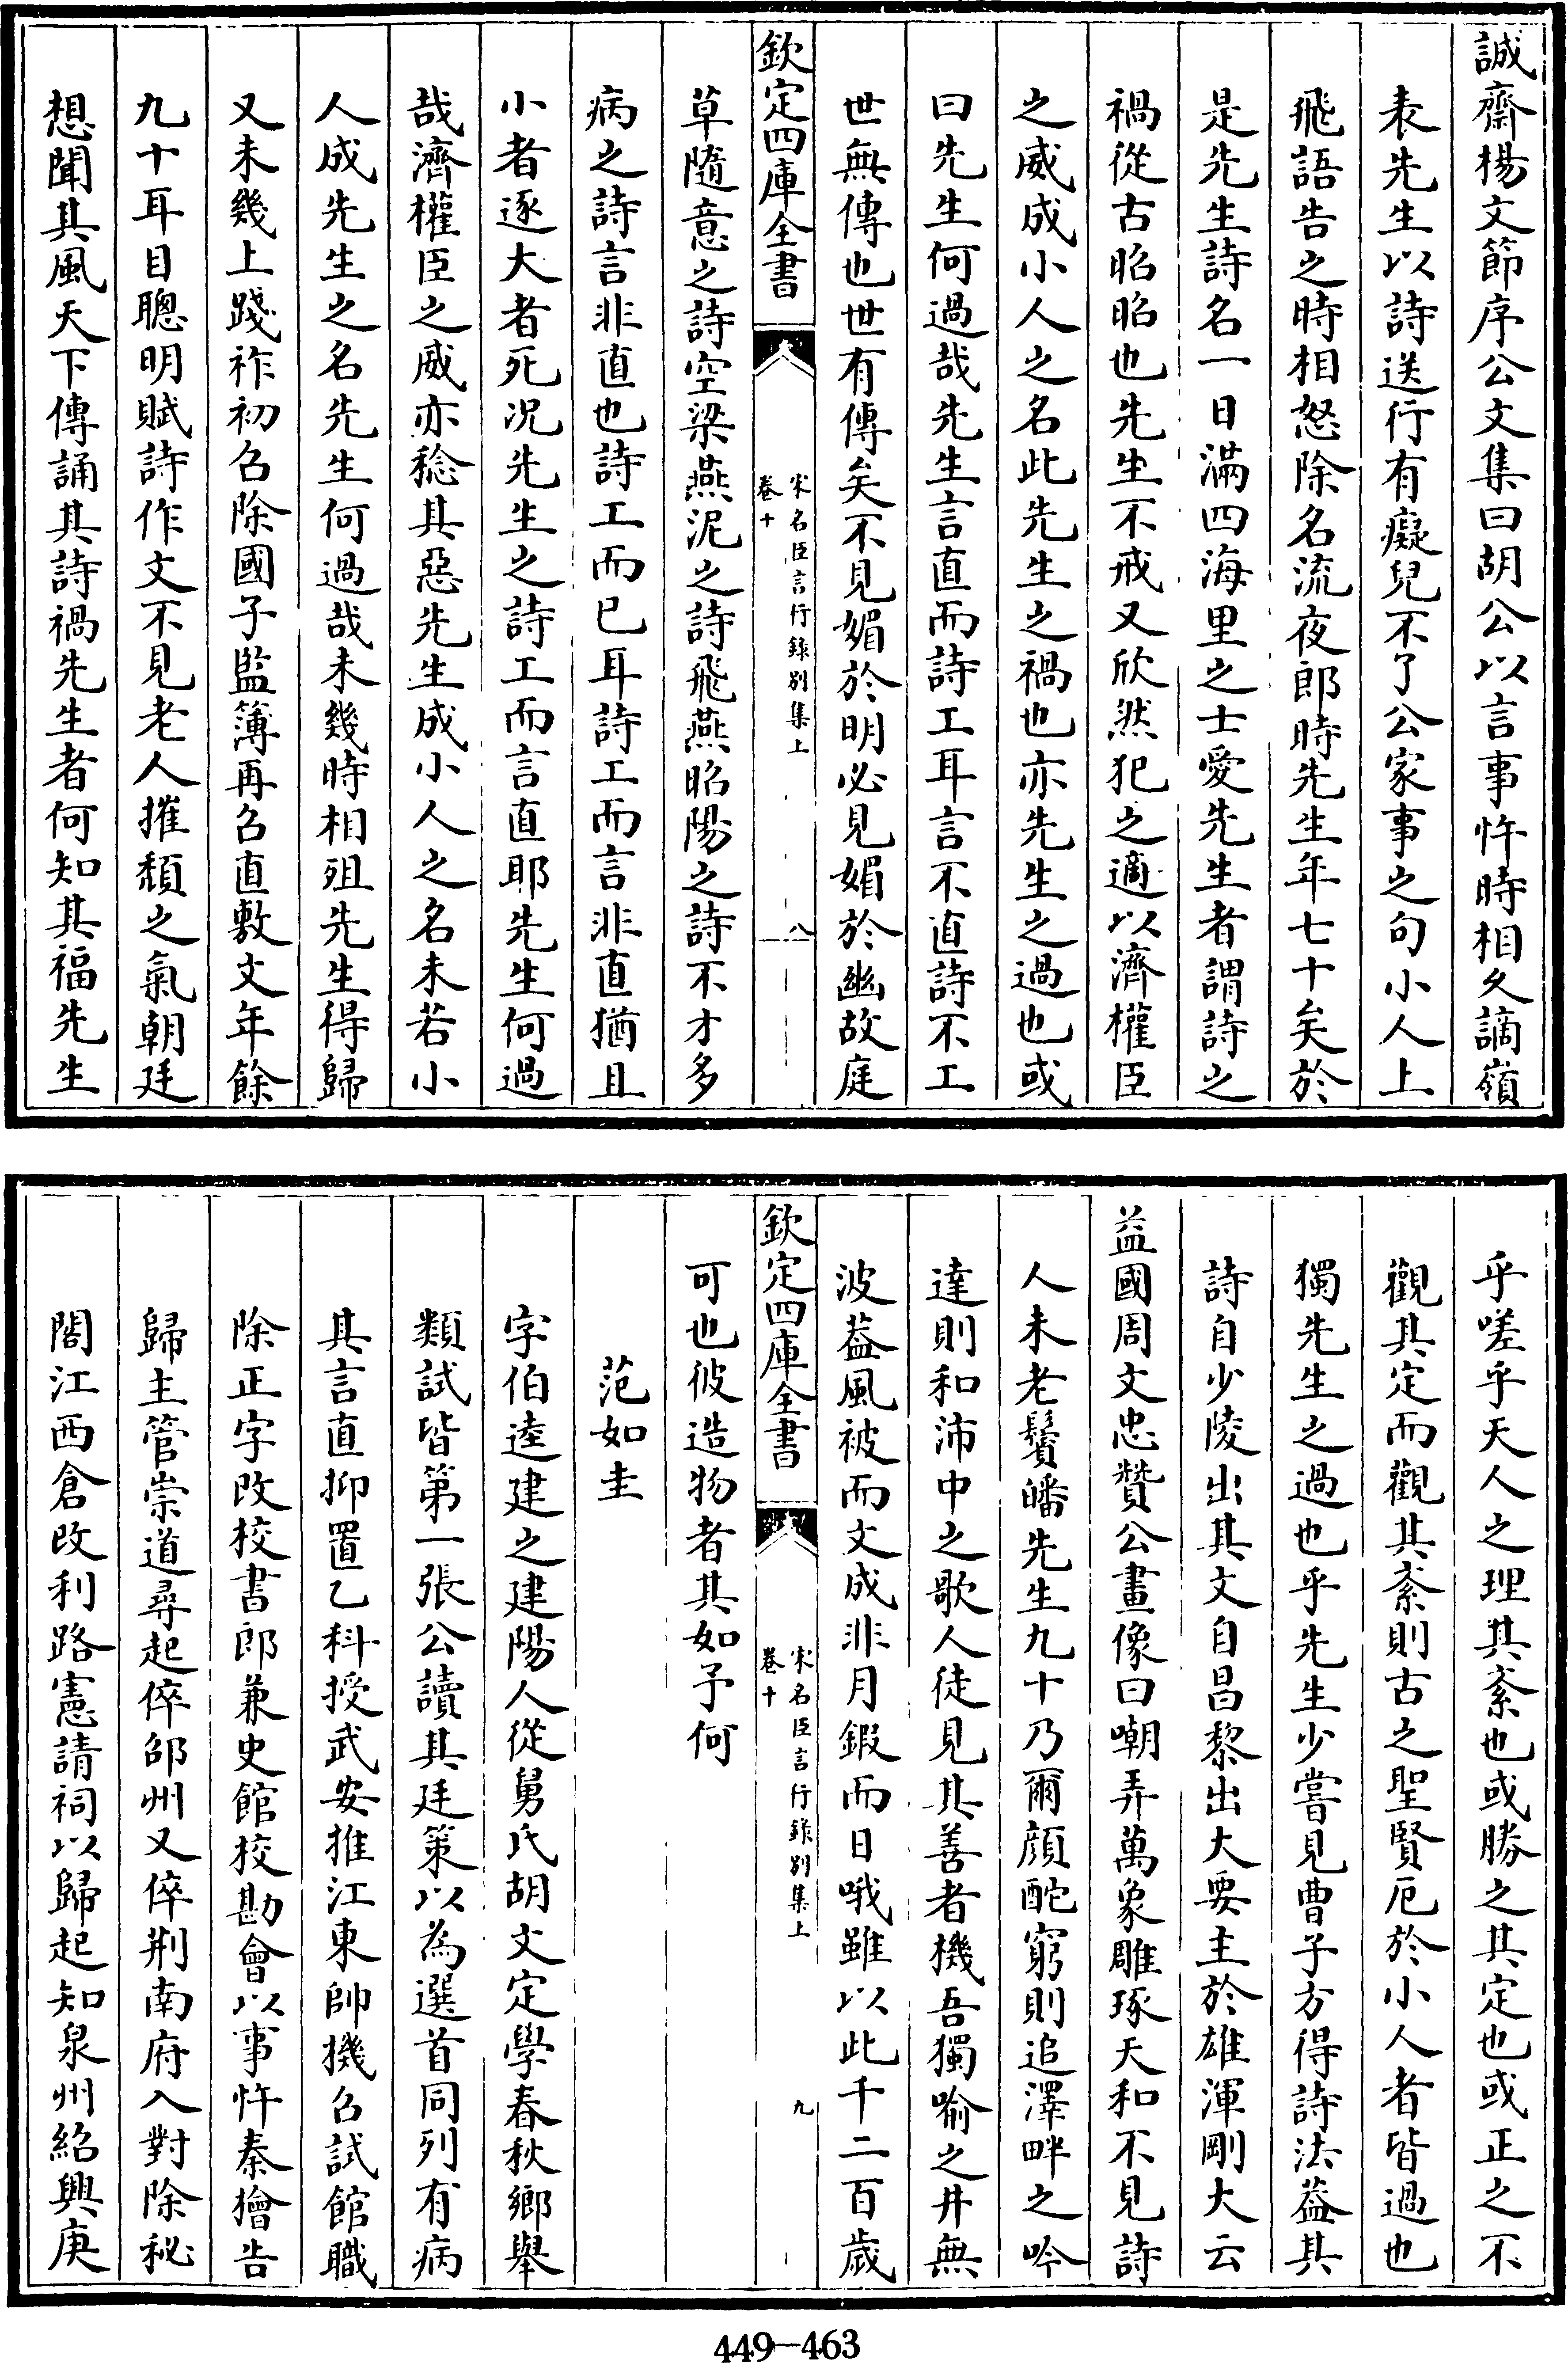 誠齋楊文節序公文集曰胡公以言事忤時相久謫嶺
表先生以詩送行有癡兒不了公家事之句小人上
飛語告之時相怒除名流夜郎時先生年七十矣於
是先生詩名一日滿四海里之士愛先生者謂詩之
禍從古昭昭也先生不戒又欣然犯之適以濟權臣
之威成小人之名此先生之禍也亦先生之過也或
曰先生何過哉先生言直而詩工耳言不直詩不工
世無傳也世有傳矣不見媚於明必見媚於幽故庭
欽定四庫全書
宋名臣言行錄別集上
卷十
八
草隨意之詩空梁燕泥之詩飛燕昭陽之詩不才多
病之詩言非直也詩工而已耳詩工而言非直猶且
小者逐大者死况先生之詩工而言直耶先生何過
哉濟權臣之威亦稔其惡先生成小人之名未若小
人成先生之名先生何過哉未幾時相殂先生得歸
又未幾上踐祚初召除國子監簿再召直敷文年餘
九十耳目聰明賦詩作文不見老人摧頽之氣朝廷
想聞其風天下傳誦其詩禍先生者何知其福先生
乎嗟乎天人之理其紊也或勝之其定也或正之不
觀其定而觀其紊則古之聖賢厄於小人者皆過也
獨先生之過也乎先生少嘗見曹子方得詩法葢其
詩自少陵出其文自昌黎出大要主於雄渾剛大云
益國周文忠贊公畫像曰嘲弄萬象雕琢天和不見詩
人未老鬢皤先生九十乃爾顔酡窮則追澤畔之吟
達則和沛中之歌人徒見其善者機吾獨喻之井無
波葢風被而文成非月鍜而日哦雖以此千二百歲
欽定四庫全書
宋名臣言行錄別集上
卷十
九
可也彼造物者其如予何
范如圭
字伯逵建之建陽人從舅氏胡文定學春秋鄉舉
類試皆第一張公讀其廷策以為選首同列有病
其言直抑置乙科授武安推江東帥機召試館職
除正字改校書郎兼史館校勘會以事忤秦檜告
歸主管崇道尋起倅邵州又倅荆南府入對除秘
閣江西倉改利路憲請祠以歸起知泉州紹興庚
449—463